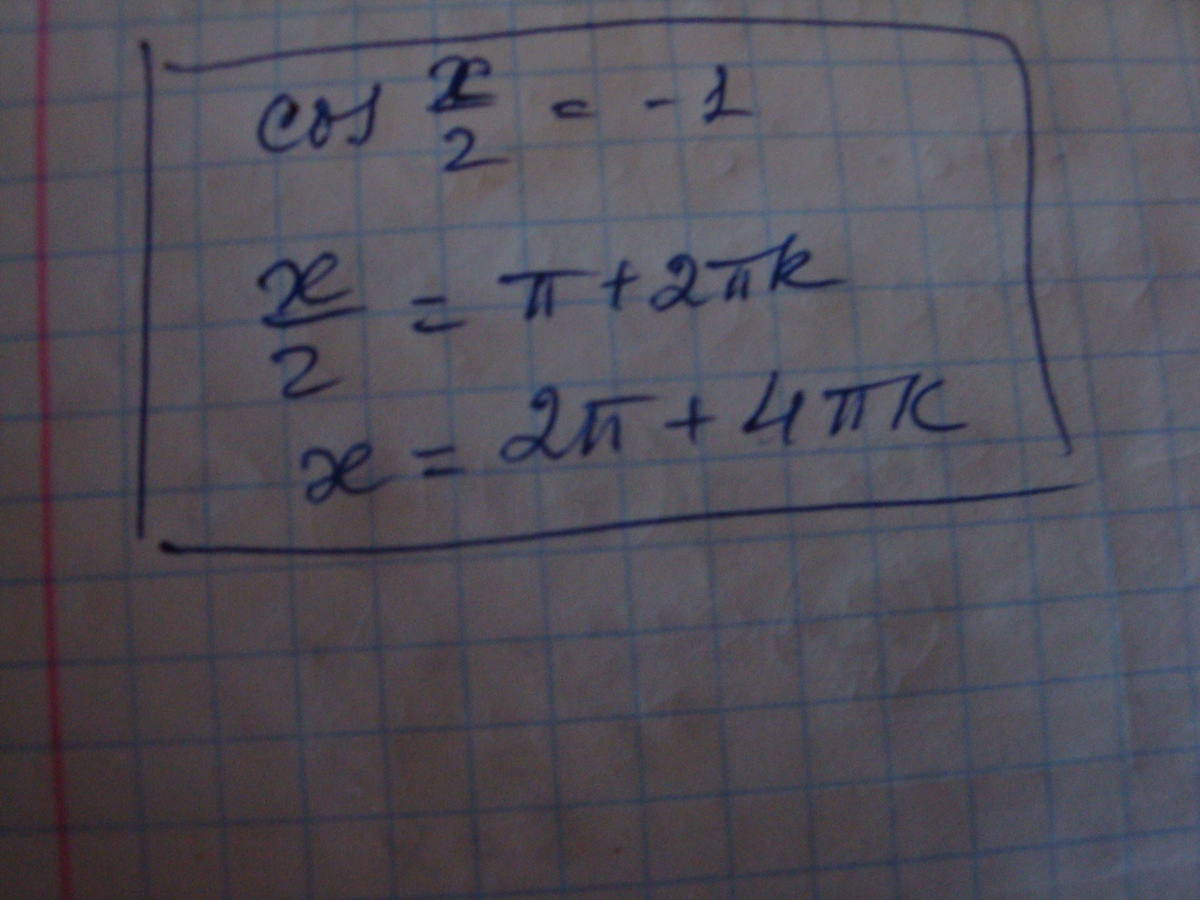 cos x/2 = -1
x/2 = π + 2πk
x = 2π + 4πk